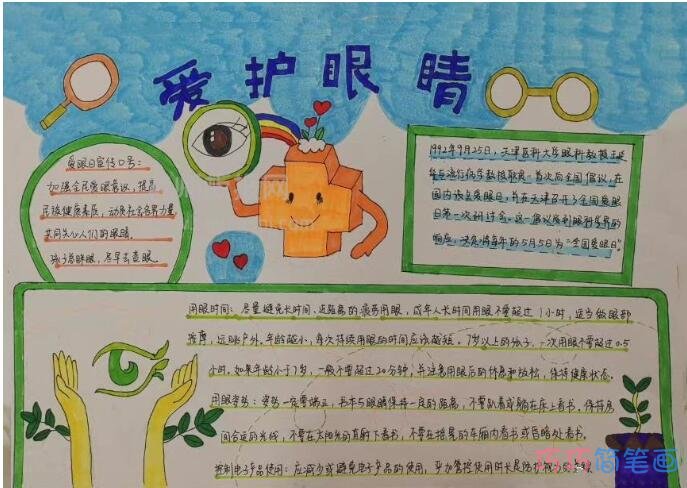 爱护眼睛
爱眼日宣传口号:
加强全民爱眼意识,提高
民族健康素质,动员社会各界力量,
共同关心人们的眼睛。
孩子总眯眼,尽早去查眼。
1992年9月25日,天津医科大学眼科教授王延
华与流行病学教授耿贯一首次向全国倡议,在
国内设立爱眼日,并在天津召开了全国爱眼
日第一次研讨会。这一倡议受到眼科学界的
响应,决定将每年的5月5日为“全国爱眼日”。
用眼时间:尽量避免长时间、近距离的疲劳用眼,成年人长时间用眼不要超过1小时,适当做眼部
按摩,远眺户外。年龄越小,每次持续用眼的时间应该越短。7岁以上的孩子,一次用眼不要超过0.5
小时,如果年龄小于7岁,一般不要超过20分钟,并注意用眼后的休息和放松,保持健康状态。
用眼姿势:姿势一定要端正,书本与眼睛保持一定的距离,不要趴着或躺在床上看书,保持房
间合适的光线,不要在太阳光的直射下看书,不要在摇晃的车厢内看书或昏暗处看书。
控制电子产品使用:应减少或避免电子产品的使用,严加掌控使用时长是防护视力的关键
简笔画